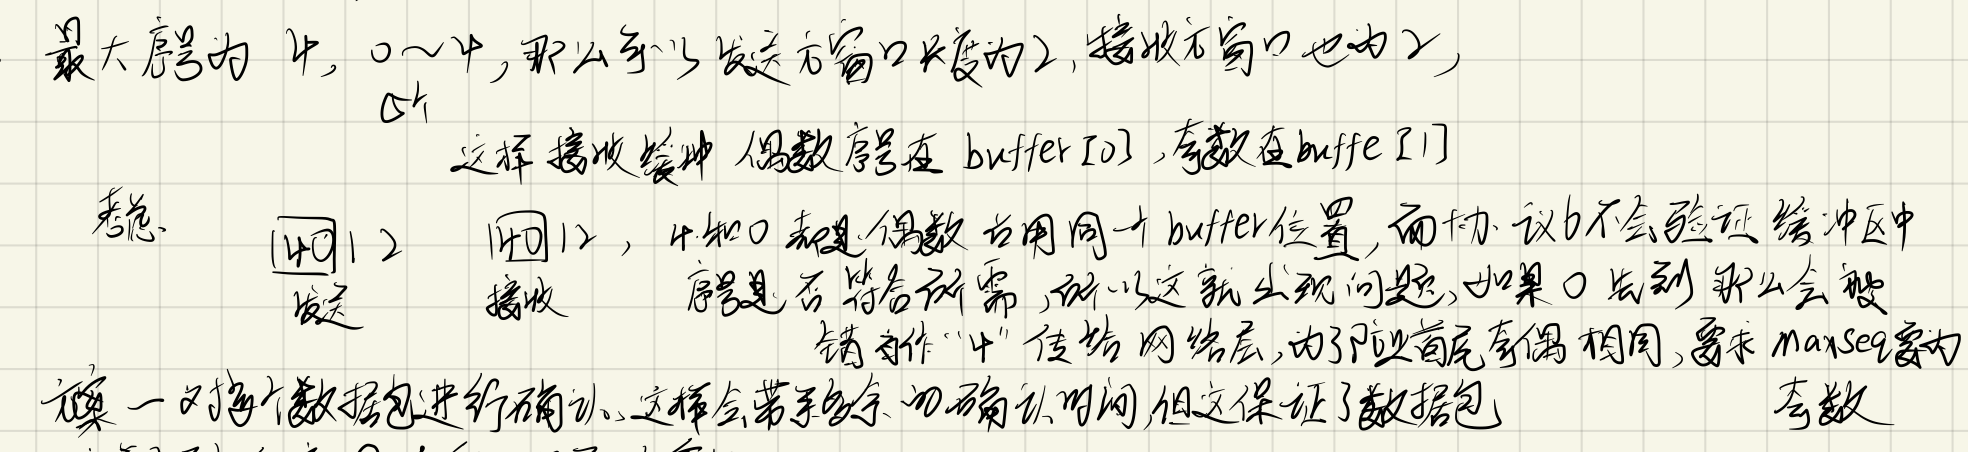 最大序号为 4, 0~4, 那么可以发送方窗口长度为2, 接收方窗口也为2,
5个
这样接收缓冲 偶数序号在 buffer[0], 奇数在buffe[1]
考虑. |40|12 |40|12, 4和0都是偶数占用同一个buffer位置, 而协议6不会验证缓冲区中
发送 接收 序号是否符合所需, 所以这就出现问题, 如果0先到那么会被
错当作“4”传给网络层, 为了防止首尾奇偶相同, 要求 maxseq要为
奇数
方案一对每个数据包进行确认. 这样会带来多余的确认时间, 但这保证了数据包